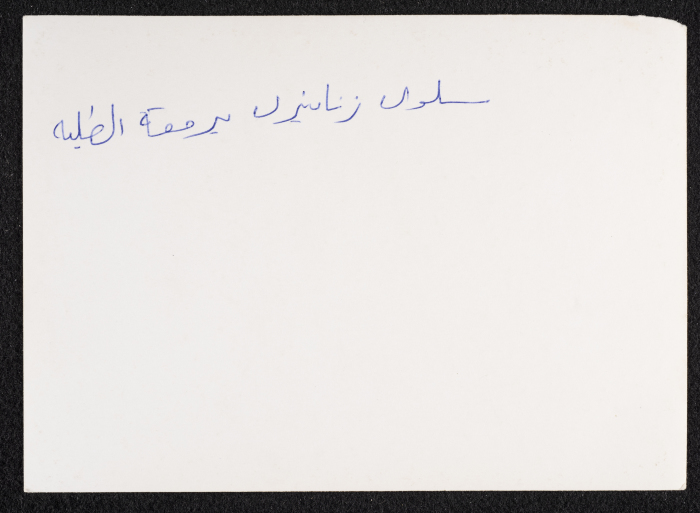 سلوى زنانيري برفقة الطلبه